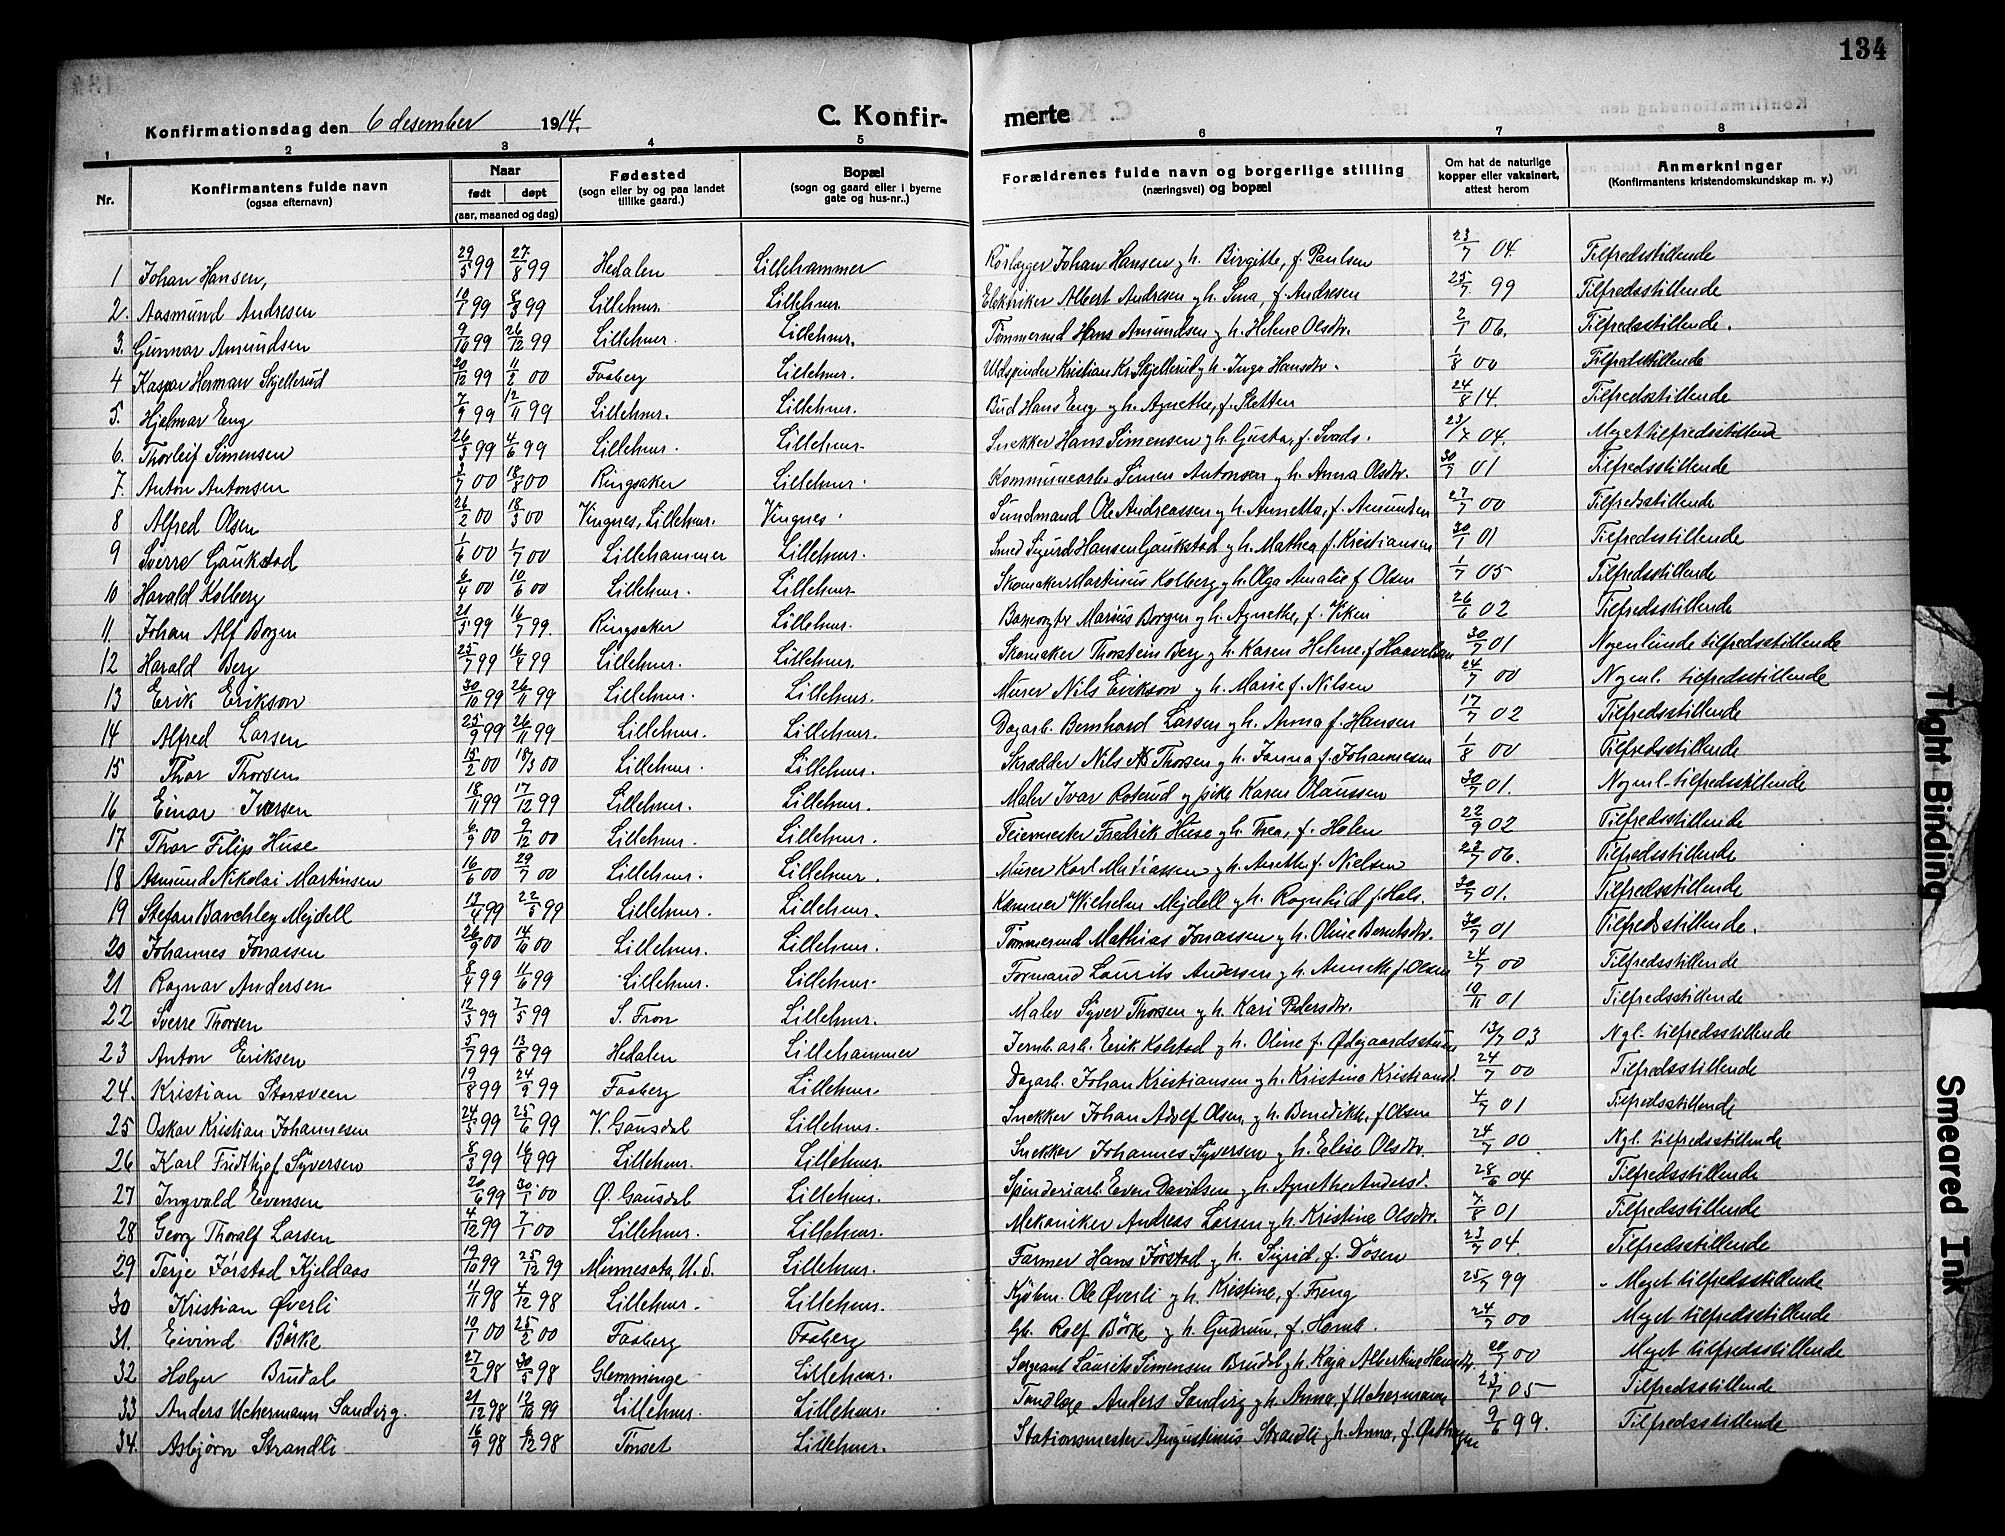 134
Konfirmationsdag den 6 desember 1914. C. Konfirmerte
1 2 3 4 5 6 7 8
Nr. Konfirmantens fulde navn (ogsaa efternavn) Naar født døpt (aar, maaned og dag) Fødested (sogn eller by og paa landet tillike gaard.) Bopæl (sogn og gaard eller i byerne gate og hus-nr..) Forældrenes fulde navn og borgerlige stilling (næringsvei) og bopæl Om hat de naturlige kopper eller vaksinert, attest herom Anmerkninger (Konfirmantens kristendomskundskap m. v.)
1 Johan Hansen, 29/5 99 27/8 99 Hedalen Lillehammer Rörlægger Johan Hansen og h. Birgitte, f. Paulsen 23/7 04. Tilfredsstillende
2. Aasmund Andresen 10/1 99 8/3 99 Lillehmr. Lillehmr. Elektriker Albert Andresen og h. Sina, f. Andresen 25/7. 99 Tilfredsstillende
3. Gunnar Amundsen 9/10 99 26/12 99 Lillehmr. Lillehmr. Tømmermd Hans Amundsen og h. Helene Olsdtr. 2/1 06. Tilfredsstillende.
4 Kaspar Herman Skjellerud 20/12 99 11/2 00 Faaberg Lillehmr. Uldspinder Kristian Kr. Skjellerud og h. Inga Hansdtr. 1/8 00 Tilfredsstillende
5. Hjelmar Eng 7/9 99 12/11 99 Lillehmr. Lillehmr. Bud Hans Eng og h. Agnethe, f. Sletten 24/8 14. Tilfredsstillende
6. Thorleif Simensen 26/3 99 4/6 99 Lillehmr. Lillehmr. Snekker Hans Simensen og h. Gusta, f. Svads. 23/7 04. Meget tilfredsstillend
7. Anton Antonsen 2/7 00 18/8 00 Ringsaker Lillehmr. Kommunearb. Simen Antonsen og h. Anna Olsdtr. 30/7 01 Tilfredsstillende
8 Alfred Olsen 26/2 00 18/3 00 Vingnes, Lillehmr. Vingnes. Sundmand Ole Andreassen og h. Annetta, f. Amundsen 27/7 00 Tilfredsstillende
9 Sverre Gaukstad 1/6 00 1/7 00 Lillehammer Lillehmr. Smed Sigurd Hansen Gaukstad og h. Mathea f. Kristiansen 30/7 01 Tilfredsstillende
10 Harald Kolberg 6/4 00 10/6 00 Lillehmr. Lillehmr. Skomaker Martinus Kolberg og h. Olga Amalie f. Olsen 1/7 05 Tilfredsstillende
11. Johan Alf Borgen 21/5 99 16/7 99. Ringsaker Lillehmr. Marius Borgen og h. Agnethe, f. Viken 26/6 02 Tilfredsstillende
12 Harald Berg 25/7 99 16/4 99 Lillehmr. Lillehmr. Skomaker Thorstein Berg og h. Karen Helene f. Haavelsen 30/7 01 Nogenlunde tilfredsstillende
13 Erik Erikson 30/10 99 26/11 99 Lillehmr. Lillehmr. Murer Nils Erikson og h. Marie f. Nilsen 24/7 00 Nogenl. tilfredsstillende
14 Alfred Larsen 25/9 99 26/11 99 Lillehmr. Lillehmr. Dagarb. Bernhard Larsen og h. Anna f. Hansen 17/7 02 Tilfredsstillende
15 Thor Thorsen 15/2 00 18/3 00 Lillehmr. Lillehmr. Skrædder Nils Thorsen og h. Janna f. Johannesen 1/8 00 Tilfredsstillende
16 Einar Iversen 18/11 99 17/12 99 Lillehmr. Lillehmr. Maler Ivar Roterud og pike Karen Olaussen 30/7 01. Nogenl. tilfredsstillende
17 Thor Filip Huse 6/9 00 9/12 00 Lillehmr. Lillehmr. Feiermester Fredrik Huse og h. Thea, f. Holen 22/9 02 Tilfredsstillende
18 Asmund Nikolai Martinsen 16/6 00 29/7 00 Lillehmr. Lillehmr. Murer Karl Matiassen og h. Anethe f. Nielsen 23/7 06. Tilfredsstillende
19 Stefan Barchley Mejdell 17/4 99 22/5 99 Lillehmr. Lillehmr. Wilhelm Mejdell og h. Ragnhild f. 30/7 01. Tilfredsstillende
20 Johannes Jonassen 26/9 00 14/10 00 Lillehmr. Lillehmr. Tømmermd Mathias Jonassen og h. Oline Berntsdtr. 30/7 01 Tilfredsstillende.
21 Ragnar Andersen 8/4 99 11/6 99 Lillehmr. Lillehmr. Formand Laurits Andersen og h. Annette f. Olsen 24/7 00 Tilfredsstillende
22 Sverre Thorsen 12/3 99 7/5 99 S. Fron Lillehmr. Maler Syver Thorsen og h. Kari Pedersdtr. 19/11 01 Tilfredsstillende
23 Anton Eriksen 5/7 99 13/8 99 Hedalen Lillehammer Jernb. arb. Erik Kolstad og h. Oline f. Ødegaardsstuen 13/7 03 Ngl. tilfredsstillende
24. Kristian Storsveen 19/8 99 24/9 99 Faaberg Lillehmr. Dagarb. Johan Kristiansen og h. Kristine Kristiansd. 24/7 00 Tilfredsstillende
25 Oskar Kristian Johannesen 24/5 99 25/6 99 V. Gausdal Lillehmr. Snekker Johan Adolf Olsen, og h. Benedikte, f Olsen 4/7 01 Tilfredsstillende
26 Karl Fridthjof Syversen 8/3 99 16/4 99 Lillehmr. Lillehmr. Snekker Johannes Syversen og h. Elise Olsdtr. 24/7 00. Ngl. tilfredsstillende
27 Ingvald Evensen 20/6 99 30/1 00 Ø. Gausdal Lillehmr. Spinderiarb. Even Davidsen og h. Agnethe Andersd. 28/6 04 Tilfredsstillende
28 Georg Thoralf Larsen 4/12 99 7/1 00 Lillehmr. Lillehmr. Mekaniker Andreas Larsen og h. Kristine Olsdtr. 7/8 01 Tilfredsstillende
29 Terje Jørstad Kjeldaas 19/10 99 25/12 99 Minnesota, U. S. Lillehmr. Farmer Hans Jørstad og h. Sigrid, f. Dösen 23/7 04. Tilfredsstillende
30 Kristian Øverli 11/11 98 4/12 98 Lillehmr. Lillehmr. Kjøbm. Ole Øverli og h. Kristine, f. Freng 25/7 99 Meget tilfredsstillende
31. Eivind Börke 10/1 00 25/2 00 Faaberg Faaberg Gb. Rolf Börke og h. Gudrun, f. Hornb. 24/7 00 Meget tilfredsstillende
32 Holger Brudal 27/2 98 30/5 98 Glemminge Lillehmr. Sergeant Laurits Simensen Brudal og h. Kaja Albertine Hansdtr. 20/7 00 Meget tilfredsstillende
33 Anders Uchermann Sandvig 21/12 98 12/10 99 Lillehmr. Lillehmr. Tandlæge Anders Sandvig og h. Anna, f. Uchermann 23/1 05 Tilfredsstillende
34. Asbjørn Strandli 16/9 98 6/12 98 Tønset Lillehmr. Stationsmester Augustinus Strandli og h. Anna, f. 9/6 99. Tilfredsstillende
Tight Binding
Smeared Ink